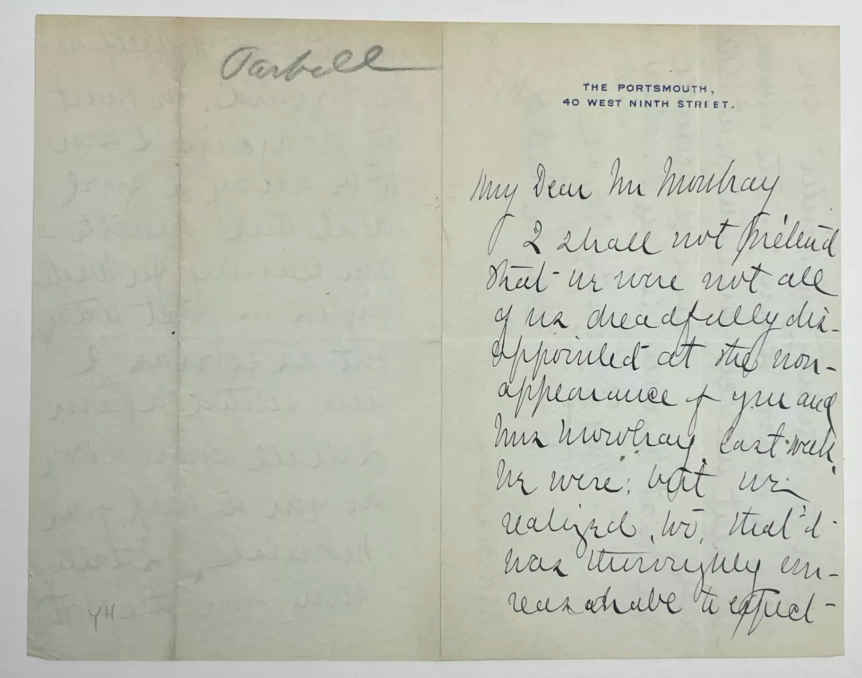 Tarbell
THE PORTSMOUTH,
40 WEST NINTH STREET.
My Dear Mr Mowbray
I shall not pretend
that we were not all
of us dreadfully dis-
appointed at the non-
appearance of you and
Mrs Mowbray last week.
We were; but we
realized, too, that it
was thoroughly un-
reasonable to expect-
YH